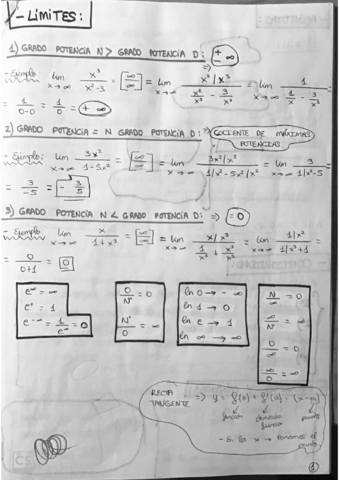 X-LÍMITES:
1) GRADO POTENCIA N > GRADO POTENCIA D: ⇒ ± ∞
- Ejemplo lim x→∞ x³/(x²-3) = [∞/∞] = lim x→∞ (x³/x³)/(x²/x³ - 3/x³) = lim x→∞ 1/(1/x - 3/x³) =
= 1/(0-0) = 1/0 = + ∞
2) GRADO POTENCIA = N GRADO POTENCIA D: ⇒ COCIENTE DE MÁXIMAS POTENCIAS
- Ejemplo: lim x→∞ 3x²/(1-5x²) = [∞/∞] = lim x→∞ (3x²/x²)/(1/x²-5x²/x²) = lim x→∞ 3/(1/x²-5)
= 3/-5 = - 3/5
3) GRADO POTENCIA N < GRADO POTENCIA D: ⇒ = 0
- Ejemplo lim x→∞ x/(1+x³) = [∞/∞] = lim x→∞ (x/x³)/(1/x³ + x³/x³) = lim x→∞ (1/x²)/(1/x³+1) =
= 0/(0+1) = 0
e^∞ = ∞
e⁰ = 1
e^-∞ = 1/e^∞ = 0
0/Nº = 0
Nº/0 = ∞
ln 0 → - ∞
ln 1 → 0
ln e → 1
ln ∞ → ∞
N/∞ = 0
∞/N = ∞
0/∞ = 0
∞/0 = ∞
RECTA TANGENTE ⇒ y = f(a) + f'(a) · (x-a)
función derivada función punto
- En la x → Ponemos el punto
1